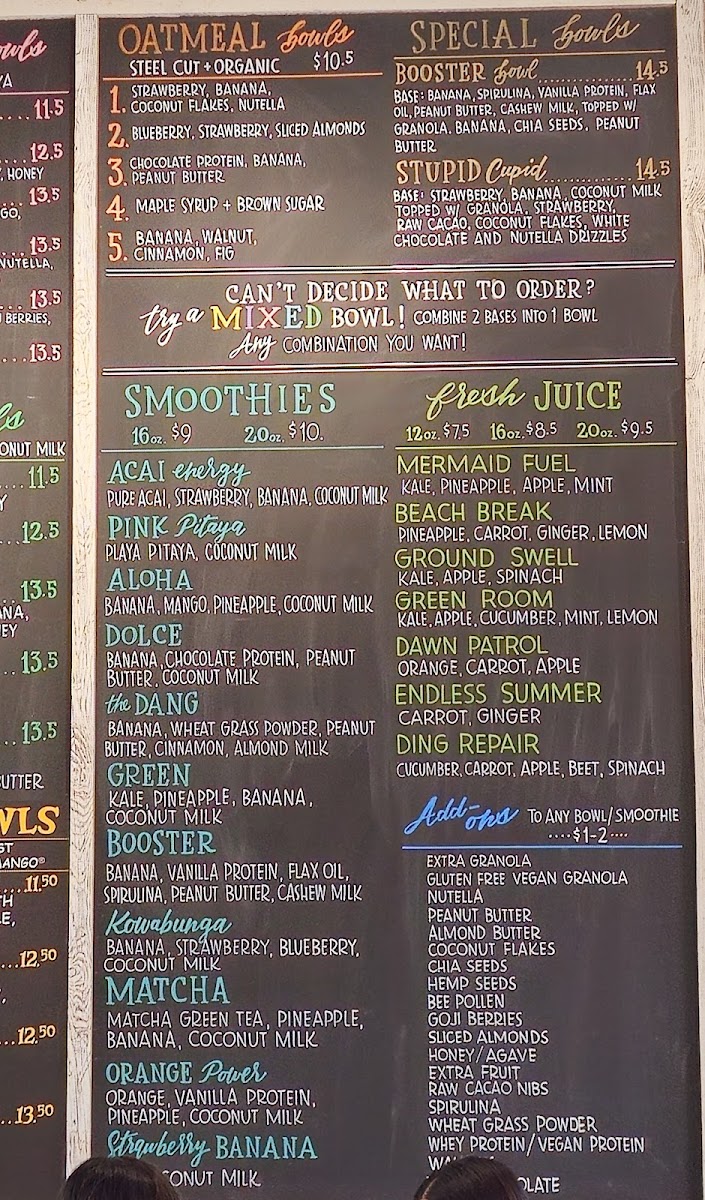 owls
YA
....11.5
...12.5
, HONEY
... 13.5
GO,
...13.5
NUTELLA,
... 13.5
BERRIES,
...13.5
ls
ONUT MILK
....11.5
Y
...12.5
13.5
ANA,
EY
.. 13.5
.. 13.5
BUTTER
WLS
ST
MANGO®
....11.50
TH
E,
...12.50
...12.50
...13.50
OATMEAL bowls
STEEL CUT + ORGANIC $10.5
1. STRAWBERRY, BANANA,
COCONUT FLAKES, NUTELLA
2. BLUEBERRY, STRAWBERRY, SLICED ALMONDS
3. CHOCOLATE PROTEIN, BANANA,
PEANUT BUTTER
4. MAPLE SYRUP + BROWN SUGAR
5. BANANA, WALNUT,
CINNAMON, FIG
SPECIAL bowls
BOOSTER bowl..............14.5
BASE: BANANA, SPIRULINA, VANILLA PROTEIN, FLAX
OIL, PEANUT BUTTER, CASHEW MILK, TOPPED W/
GRANOLA, BANANA, CHIA SEEDS, PEANUT
BUTTER
STUPID Cupid..............14.5
BASE: STRAWBERRY, BANANA, COCONUT MILK
TOPPED W/ GRANOLA, STRAWBERRY,
RAW CACAO, COCONUT FLAKES, WHITE
CHOCOLATE AND NUTELLA DRIZZLES
CAN'T DECIDE WHAT TO ORDER?
try a MIXED BOWL! COMBINE 2 BASES INTO 1 BOWL
Any COMBINATION YOU WANT!
SMOOTHIES
16oz. $9 20oz. $10.
ACAI energy
PURE ACAI, STRAWBERRY, BANANA, COCONUT MILK
PINK Pitaya
PLAYA PITAYA, COCONUT MILK
ALOHA
BANANA, MANGO, PINEAPPLE, COCONUT MILK
DOLCE
BANANA, CHOCOLATE PROTEIN, PEANUT
BUTTER, COCONUT MILK
the DANG
BANANA, WHEAT GRASS POWDER, PEANUT
BUTTER, CINNAMON, ALMOND MILK
GREEN
KALE, PINEAPPLE, BANANA,
COCONUT MILK
BOOSTER
BANANA, VANILLA PROTEIN, FLAX OIL,
SPIRULINA, PEANUT BUTTER, CASHEW MILK
Kowabunga
BANANA, STRAWBERRY, BLUEBERRY,
COCONUT MILK
MATCHA
MATCHA GREEN TEA, PINEAPPLE,
BANANA, COCONUT MILK
ORANGE Power
ORANGE, VANILLA PROTEIN,
PINEAPPLE, COCONUT MILK
Strawberry BANANA
CONUT MILK
fresh JUICE
12oz. $7.5 16oz. $8.5 20oz. $9.5
MERMAID FUEL
KALE, PINEAPPLE, APPLE, MINT
BEACH BREAK
PINEAPPLE, CARROT, GINGER, LEMON
GROUND SWELL
KALE, APPLE, SPINACH
GREEN ROOM
KALE, APPLE, CUCUMBER, MINT, LEMON
DAWN PATROL
ORANGE, CARROT, APPLE
ENDLESS SUMMER
CARROT, GINGER
DING REPAIR
CUCUMBER, CARROT, APPLE, BEET, SPINACH
Add-ons TO ANY BOWL/SMOOTHIE
....$1-2....
EXTRA GRANOLA
GLUTEN FREE VEGAN GRANOLA
NUTELLA
PEANUT BUTTER
ALMOND BUTTER
COCONUT FLAKES
CHIA SEEDS
HEMP SEEDS
BEE POLLEN
GOJI BERRIES
SLICED ALMONDS
HONEY/AGAVE
EXTRA FRUIT
RAW CACAO NIBS
SPIRULINA
WHEAT GRASS POWDER
WHEY PROTEIN/VEGAN PROTEIN
OLATE